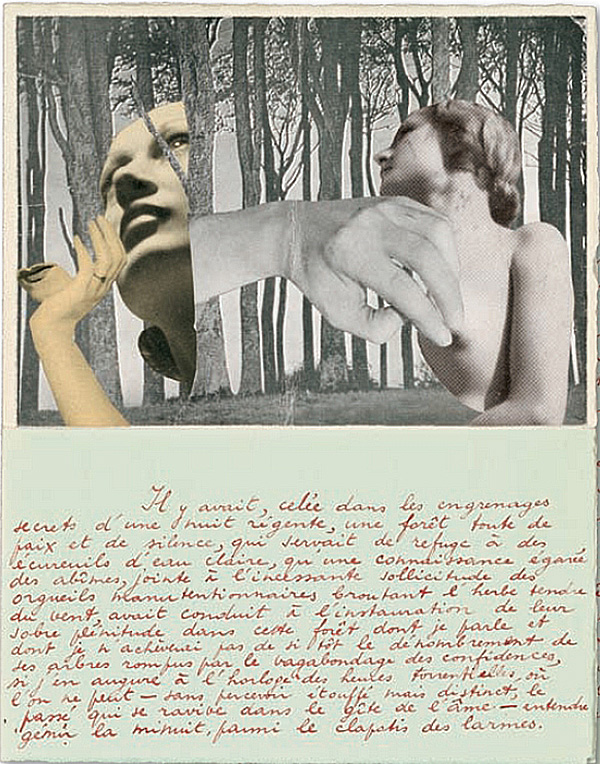 Il y avait, celée dans les engrenages
secrets d'une nuit régente, une forêt toute de
paix et de silence, qui servait de refuge à des
écureuils d'eau claire, qu'une connaissance égarée
des abîmes, jointe à l'incessante sollicitude des
orgueils manutentionnaires broutant l'herbe tendre
du vent, avait conduit à l'instauration de leur
sobre plénitude dans cette forêt, dont je parle et
dont je n'achèverai pas de si tôt le dénombrement de
ses arbres rompus par le vagabondage des confidences,
si j'en augure à l'horloge des heures torrentielles, où
l'on ne peut — sans percevoir étouffé mais distinct, le
passé qui se ravive dans le gîte de l'âme — entendre
gémir la minuit, parmi le clapotis des larmes.